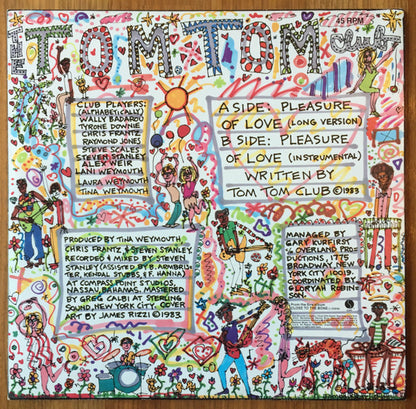 45 RPM
THE TOM TOM club
CLUB PLAYERS:
(ALPHABETICAL)
WALLY BADAROU
TYRONE DOWNIE
CHRIS FRANTZ
RAYMOND JONES
STEVE SCALES
STEVEN STANLEY
ALEX WEIR
LANI WEYMOUTH
LAURA WEYMOUTH
TINA WEYMOUTH
A SIDE: PLEASURE
OF LOVE (LONG VERSION)
B SIDE: PLEASURE
OF LOVE (INSTRUMENTAL)
WRITTEN BY
TOM TOM CLUB ©1983
PRODUCED BY TINA WEYMOUTH
CHRIS FRANTZ & STEVEN STANLEY.
RECORDED & MIXED BY STEVEN
STANLEY (ASSISTED BY B. ARWBRIS-
TER, KENDAL STUBBS, & F. HANNA)
AT COMPASS POINT STUDIOS,
NASSAU, BAHAMAS. MASTERED
BY GREG CALBI AT STERLING
SOUND, NEW YORK CITY. COVER
ART BY JAMES RIZZI ©1983
MANAGED BY
GARY KURFIRST
OVERLAND PRO-
DUCTIONS, 1775
BROADWAY, NEW
YORK CITY, 10019.
COORDINATED BY
GLORYAH ROBIN
SON.
CLOSE TO THE BONE